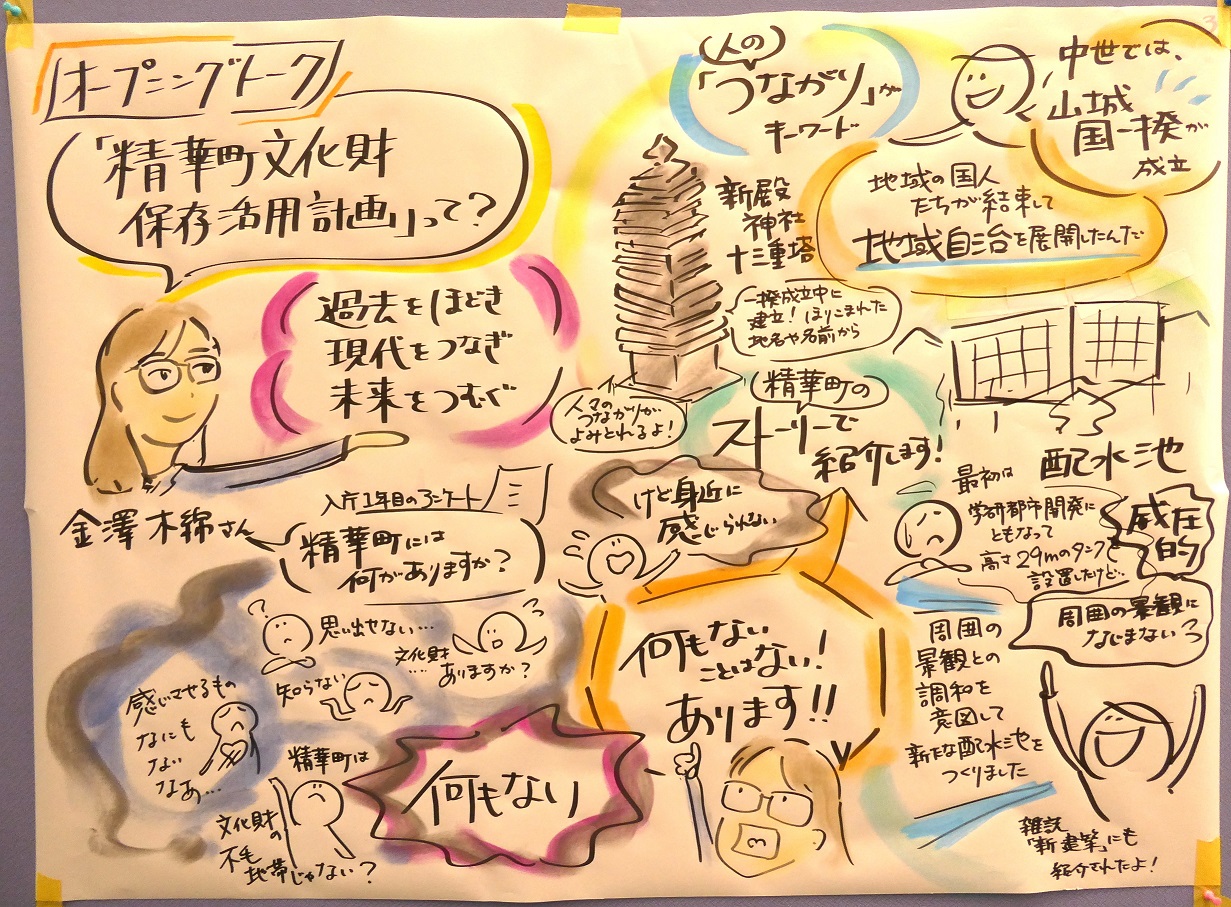 オープニングトーク
「精華町文化財
保存活用計画」って？
過去をほどき
現代をつなぎ
未来をつむぐ
金澤 木綿さん
入庁1年目のアンケート
精華町には
何がありますか？
思い出せない…
文化財
……
ありますか？
知らない
感じさせるもの
なにも
ない
なあ…
精華町は
何もない
文化財
の
不毛
地帯じゃない？
3
(人の)
「つながり」が
キーワード
中世では、
山城
国一揆が
成立
地域の国人
たちが結束して
地域自治を展開したんだ
新殿
神社
十三重塔
一揆成立中に
建立！ほりこまれた
地名や名前から
人々の
つながりが
よみとれるよ！
精華町の
ストーリーで
紹介します！
けど身近に
感じられない
何もない
ことはない！
あります！！
配水池
最初は
学研都市開発に
ともなって
高さ29mのタンクを
設置したけど…
威圧
的
周囲の景観に
なじまない
周囲の
景観との
調和を
意図して
新たな配水池を
つくりました
雑誌
「新建築」にも
紹介されたよ！